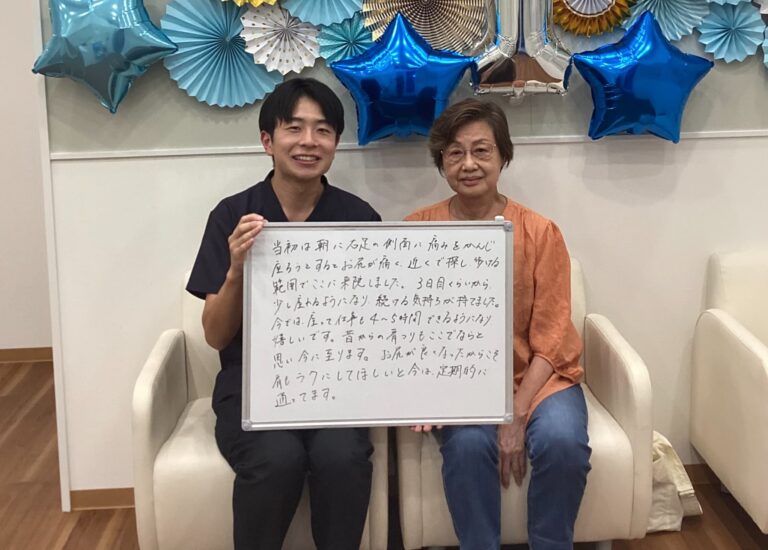 当初は朝に右足の側面に痛みをかんじ
座ろうとするとお尻が痛く、近くで探し、歩ける
範囲でここに来院しました。3日目くらいから、
少し座れるようになり、続ける気持ちが持てました。
今では、座って仕事も4～5時間できるようになり
嬉しいです。昔からの肩こりもここでならと
思い今に至ります。お尻が良くなったからこそ
肩もラクにしてほしいと今は、定期的に
通ってます。